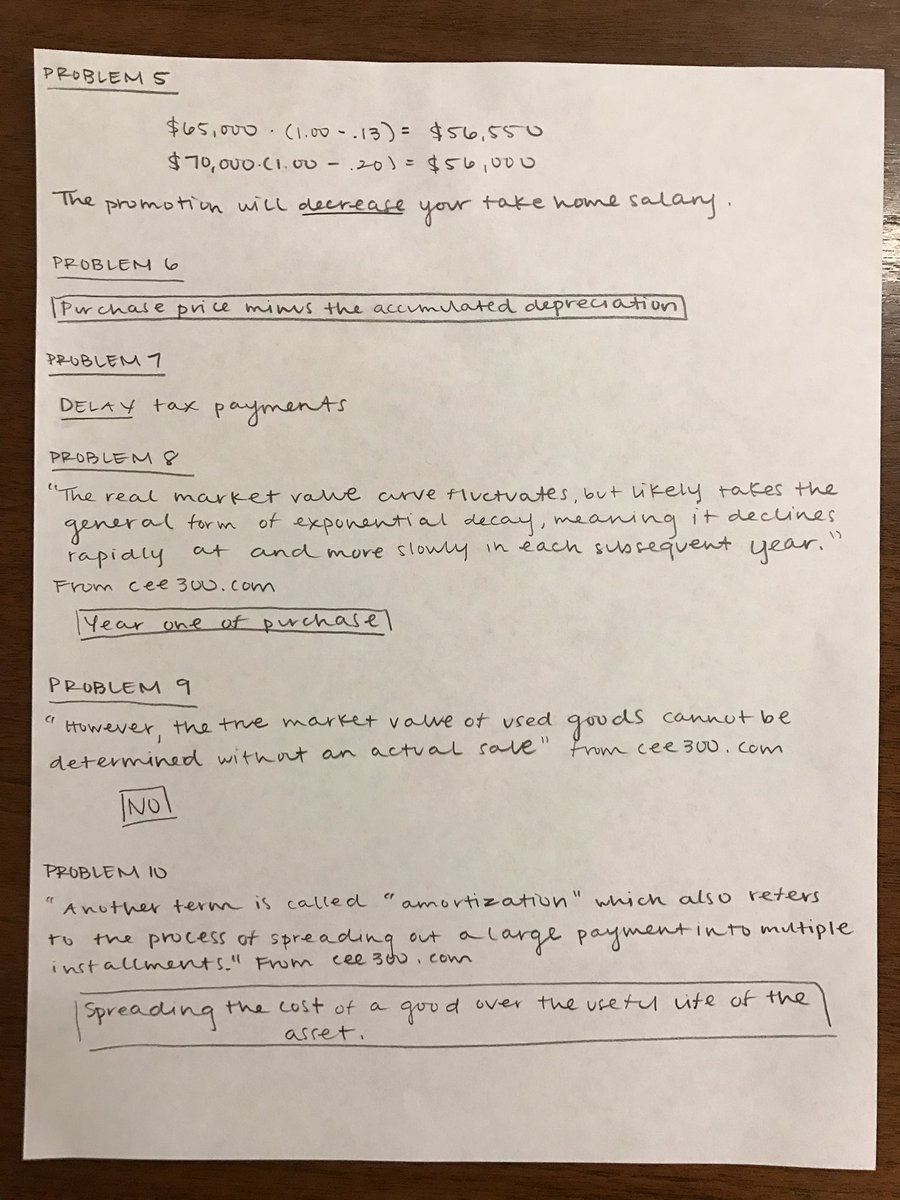 PROBLEM 5
$65,000 · (1.00 - .13) = $56,550
$70,000 · (1.00 - .20) = $56,000
The promotion will decrease your take home salary.
PROBLEM 6
Purchase price minus the accumulated depreciation
PROBLEM 7
DELAY tax payments
PROBLEM 8
"The real market value curve fluctuates, but likely takes the
general form of exponential decay, meaning it declines
rapidly at and more slowly in each subsequent year."
From cee300.com
Year one of purchase
PROBLEM 9
"However, the true market value of used goods cannot be
determined without an actual sale" from cee300.com
NO
PROBLEM 10
"Another term is called "amortization" which also refers
to the process of spreading out a large payment into multiple
installments." From cee300.com
Spreading the cost of a good over the useful life of the
asset.